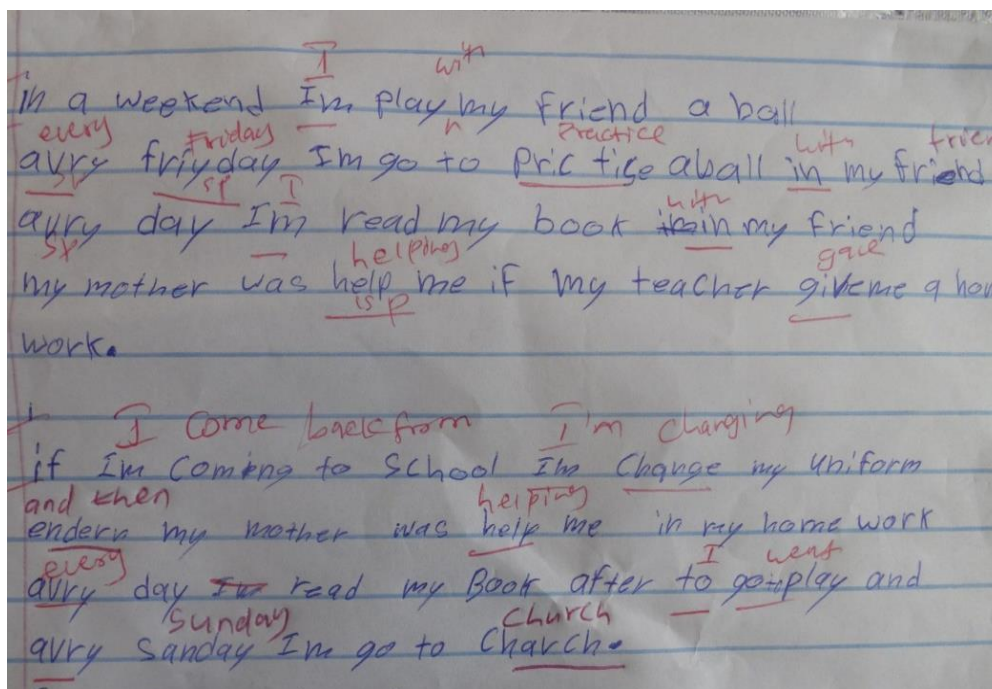 I with
in a weekend Im play my friend a ball
every Friday Practice with frien
avry friyday Im go to prictise aball in my friend
sp sp I with
avry day Im read my book in my friend
sp helping gave
my mother was help me if my teacher giveme a hom
sp
work.
I come back from I'm changing
if Im coming to school Im change my uniform
and then helping
endern my mother was help me in my home work
every I went
avry day Im read my Book after to go play and
Sunday Church
avry Sanday Im go to Charch.